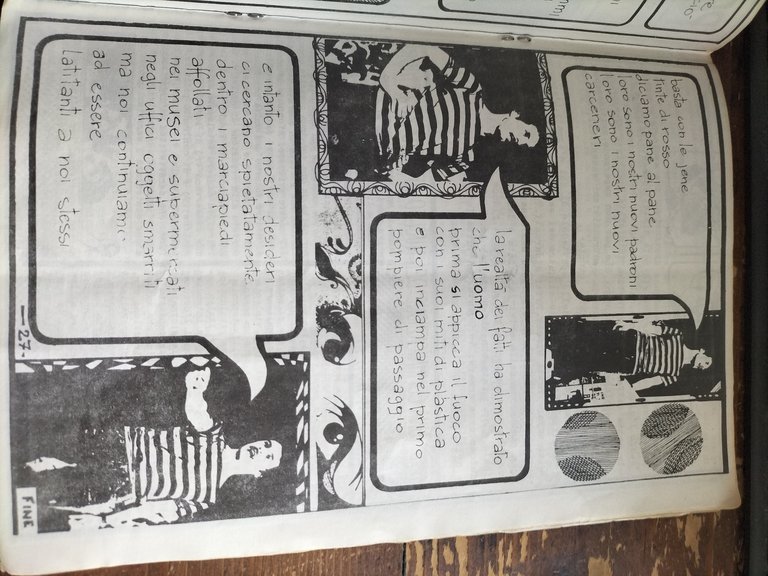 basta con le jene
tinte di rosso
diciamo pane al pane
loro sono i nostri nuovi padroni
loro sono i nostri nuovi
carceneri
la realtà dei fatti ha dimostrato
che l'uomo
prima si appicca il fuoco
con i suoi miti di plastica
e poi inciampa nel primo
pompiere di passaggio
e intanto i nostri desideri
ci cercano spietatamente
dentro i marciapiedi
affollati
nei musei e subermercati
negli uffici oggetti smarriti
ma noi continuiamo
ad essere
latitanti a noi stessi
—27—
FINE